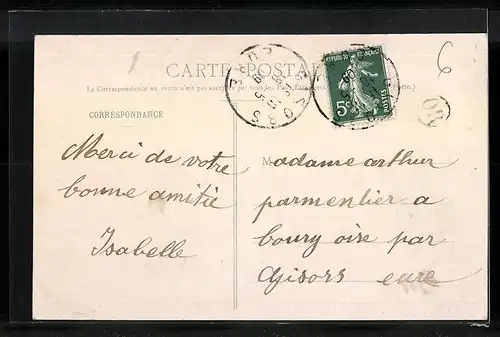 CARTE POSTALE
La Correspondance au recto n'est pas acceptée par tous les Pays
CORRESPONDANCE
Merci de votre
bonne amitie
Isabelle
Madame arthur
parmentier a
boury oise par
Gisors eure
REPUBLIQUE FRANÇAISE
5c POSTES
GISORS
EURE
6